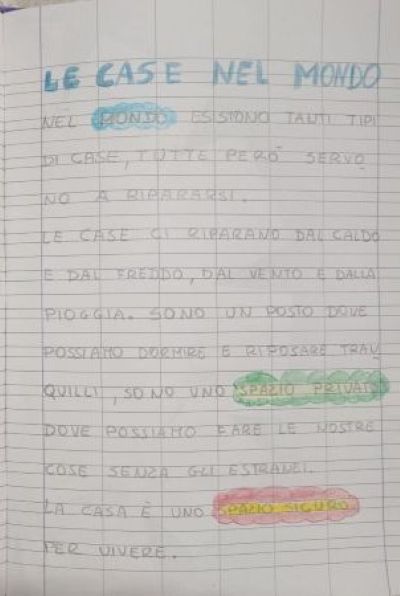 LE CASE NEL MONDO
NEL MONDO ESISTONO TANTI TIPI
DI CASE, TUTTE PERÒ SERVO
NO A RIPARARSI.
LE CASE CI RIPARANO DAL CALDO
E DAL FREDDO, DAL VENTO E DALLA
PIOGGIA. SONO UN POSTO DOVE
POSSIAMO DORMIRE E RIPOSARE TRAN
QUILLI, SONO UNO SPAZIO PRIVATO
DOVE POSSIAMO FARE LE NOSTRE
COSE SENZA GLI ESTRANEI.
LA CASA È UNO SPAZIO SICURO
PER VIVERE.